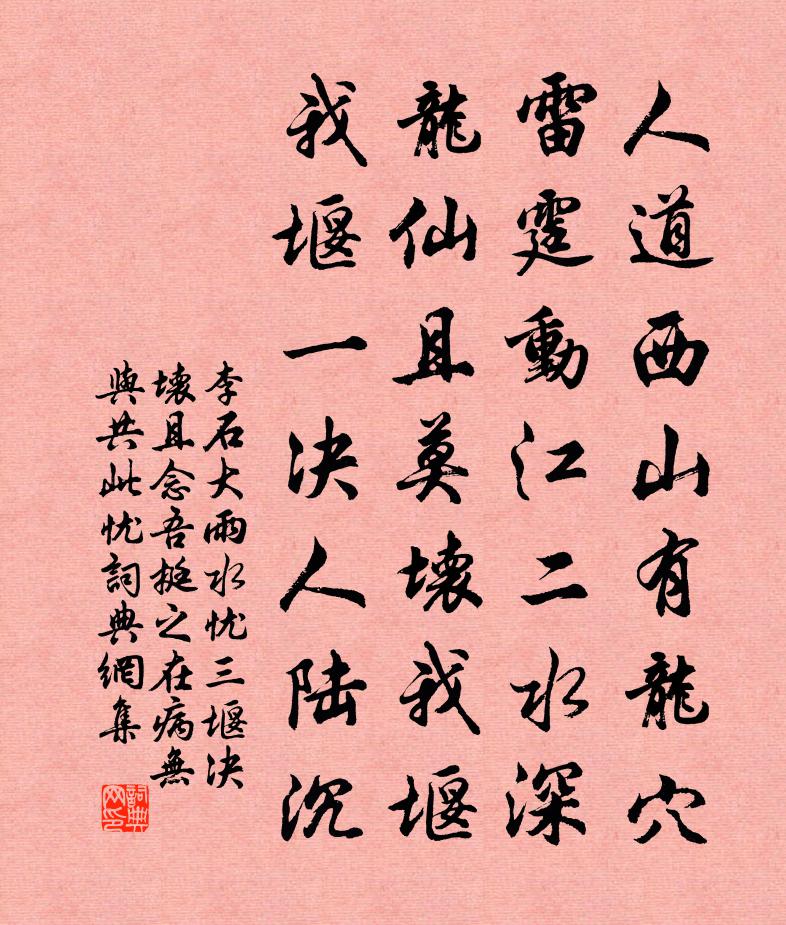 人道西山有龍穴
雷霆動江二水深
龍仙且莫壞我堰
我堰一决人陆沉
李石大雨水忧三堰决
壊且念吾挺之在病無
與共此忧詞典網集
詞典网印